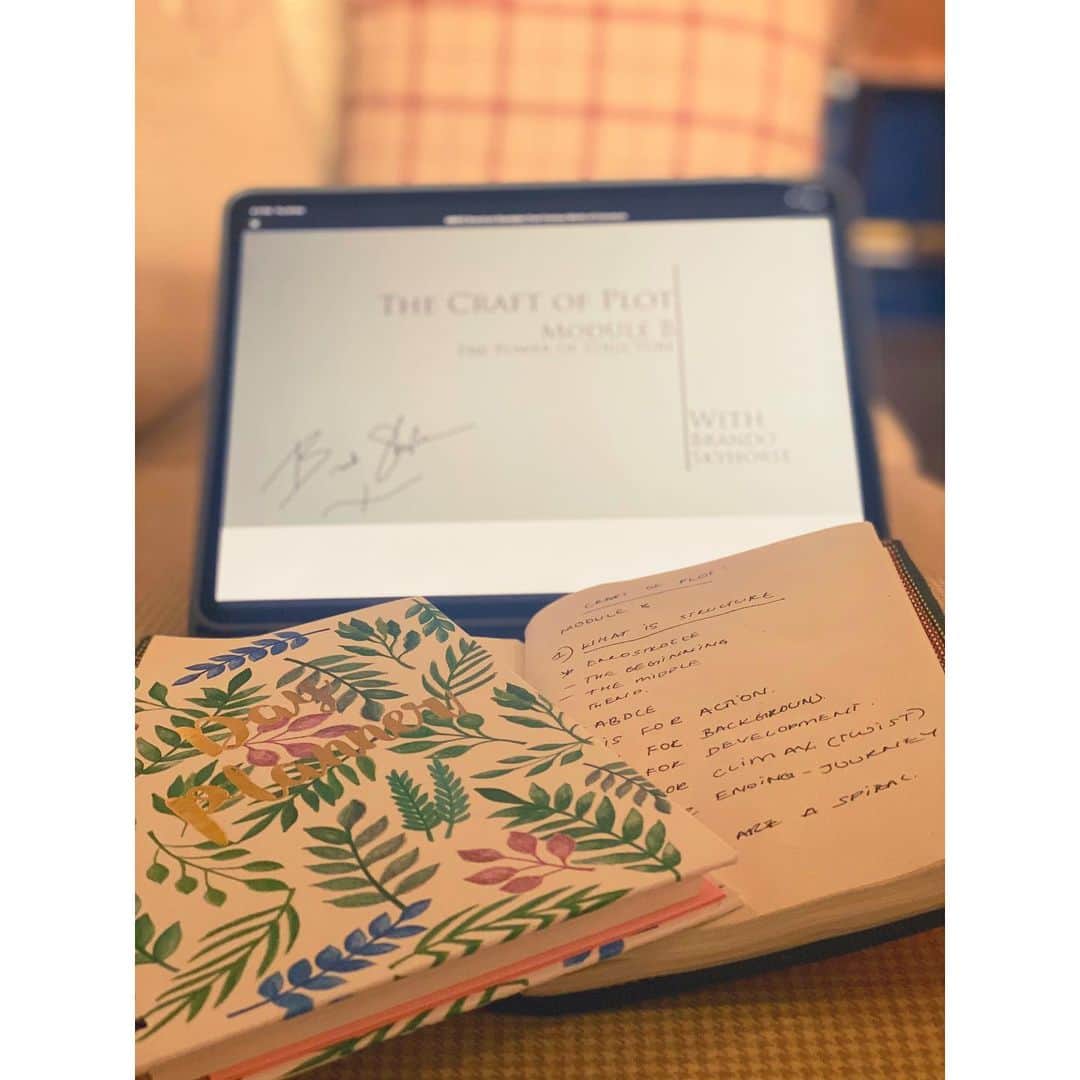 THE CRAFT OF PLOT
MODULE B
THE POWER OF STRUCTURE
WITH
BRANDO
SKYHORSE
Day
Planner
CRAFT OF PLOT
MODULE
1) WHAT IS STRUCTURE
- THE BEGINNING
- THE MIDDLE
ABDCE
IS FOR ACTION.
FOR BACKGROUND
FOR DEVELOPMENT.
FOR CLIMAX (TWIST)
ENDING - JOURNEY
ARE A SPIRAL.